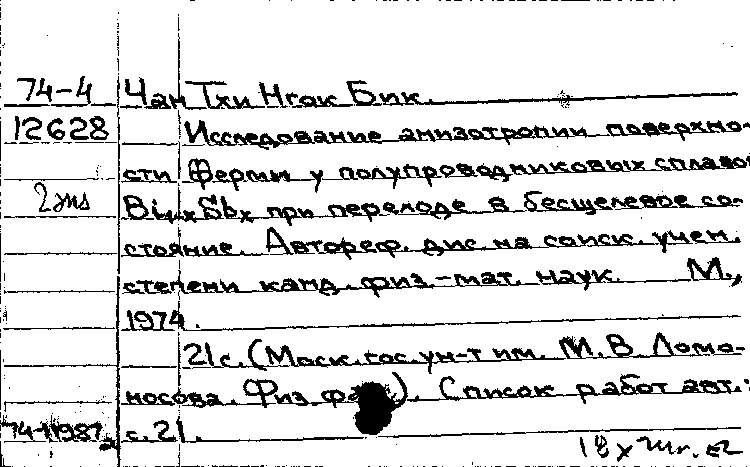 74-4 Чан Тхи Нгок Бик.
12628 Исследование анизотропии поверхно-
сти Ферми у полупроводниковых сплавов
2 экз Bi1-xSbx при переходе в бесщелевое со-
стояние. Автореф. дис. на соиск. учен.
степени канд. физ.-мат. наук. М.,
1974.
21с. (Моск. гос. ун-т им. М.В. Ломо-
носова. Физ. фак). Список работ авт.:
74-11987 с. 21.